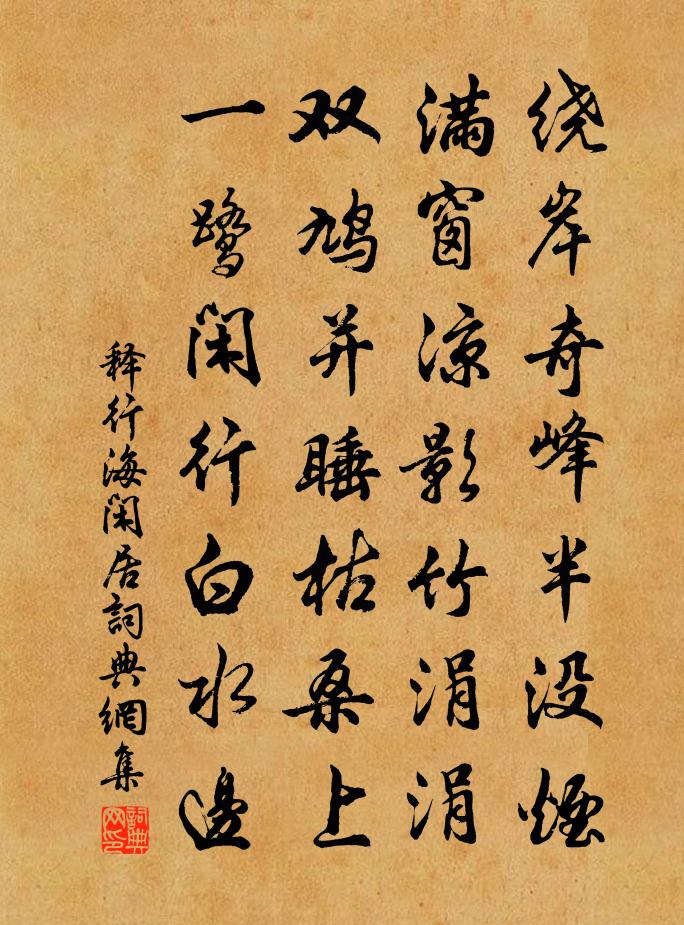 绕岸奇峰半没烟
满窗凉影竹涓涓
双鸠并睡枯桑上
一鹭闲行白水边
释行海闲居詞典網集
詞典网印